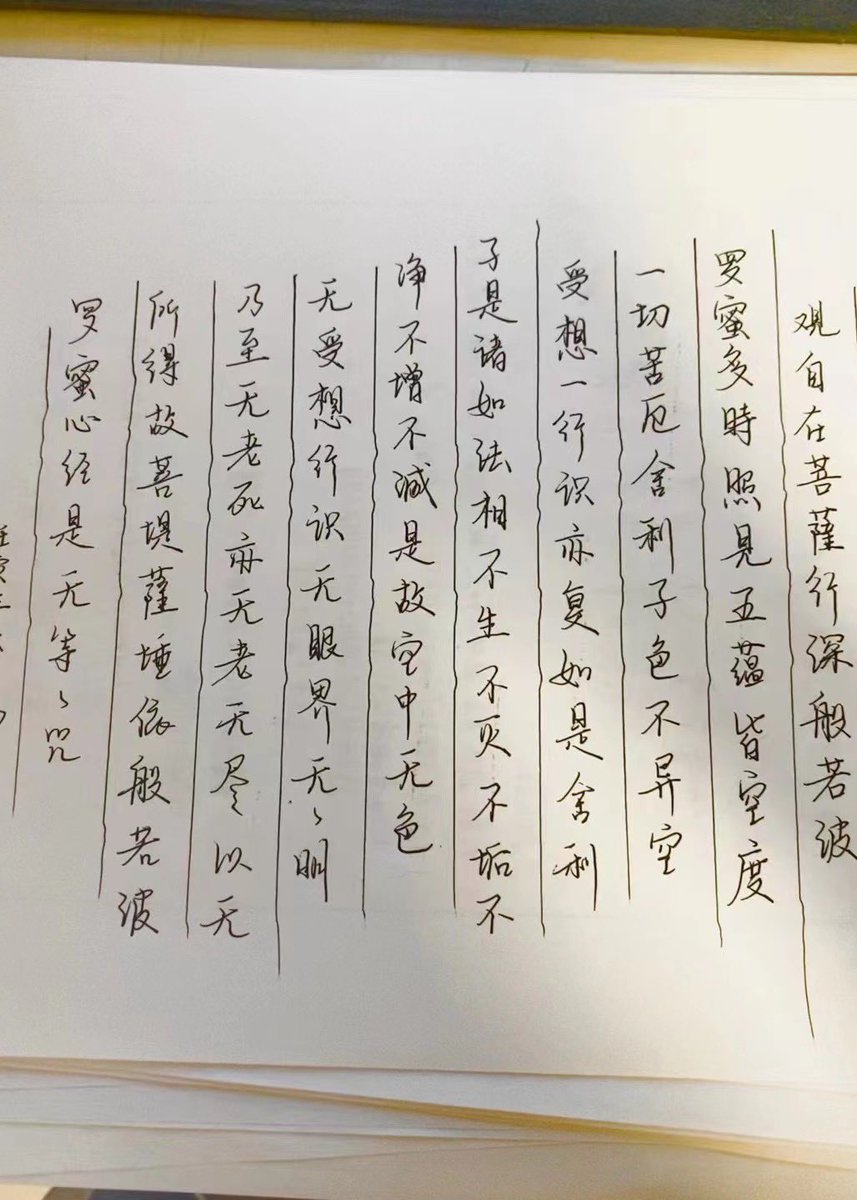 观自在菩薩行深般若波
罗蜜多時照見五蕴皆空度
一切苦厄舍利子色不异空
受想一行识亦复如是舍利
子是诸如法相不生不灭不垢不
净不增不减是故空中无色
无受想行识无眼界无〻明
乃至无老死亦无老无尽以无
所得故菩堤薩埵依般若波
罗蜜心经是无等〻咒